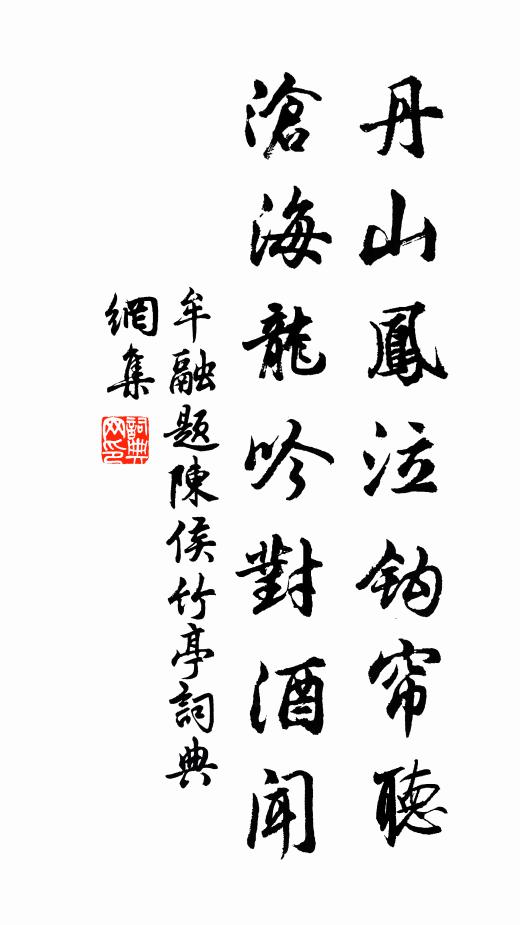 丹山鳳泣鈎帘聽
滄海龍吟對酒聞
牟融題陳侯竹亭詞典
網集
詞典
网印